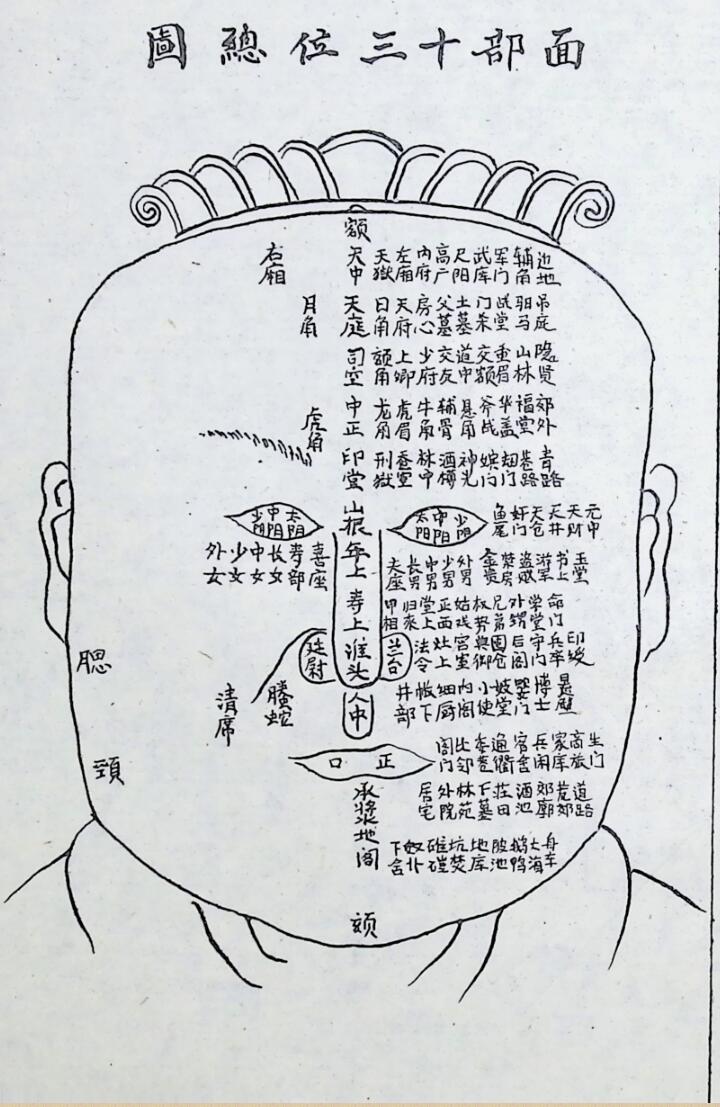 面部十三位總圖
额
右廂 天中 天獄 左廂 内府 高广 尺阳 武库 军门 辅角 边地
月角 天庭 日角 天府 房心 父墓 土墓 门杀 战堂 驲马 吊庭
司空 额角 上卿 少府 交友 道中 交额 重眉 山林 隐贤
虎角 中正 龙角 虎眉 牛角 辅骨 悬角 斧战 华盖 福堂 郊外
印堂 刑獄 蚕室 林中 酒樽 神光 嫔门 劫门 巷路 青路
少阴 中阴 太阴 山根 太阳 中阳 少阳 鱼尾 奸门 天仓 天井 天财 元中
外女 少女 中女 长女 妻部 喜座 年上 夫座 长男 中男 少男 外男 金匮 禁房 盗贼 游军 书上 玉堂
寿上 甲相 归来 堂上 正面 姑戏 权势 兄弟 外甥 学堂 命门
廷尉 准头 兰台 法令 灶上 宫室 典御 园仓 后阁 守门 兵卒 印绶
腮 清席 螣蛇 人中 井部 帐下 细厨 内阁 小使 妓堂 婴门 博士 悬壁
頚 正口 阁门 比邻 委巷 通衢 客舍 兵闲 家库 商旅 生门
承浆 居宅 外院 林苑 下墓 庄田 酒池 郊廓 荒郊 道路
地阁 下舍 奴仆 碓磑 坑焚 地库 陂池 鹅鸭 大海 舟车
颏